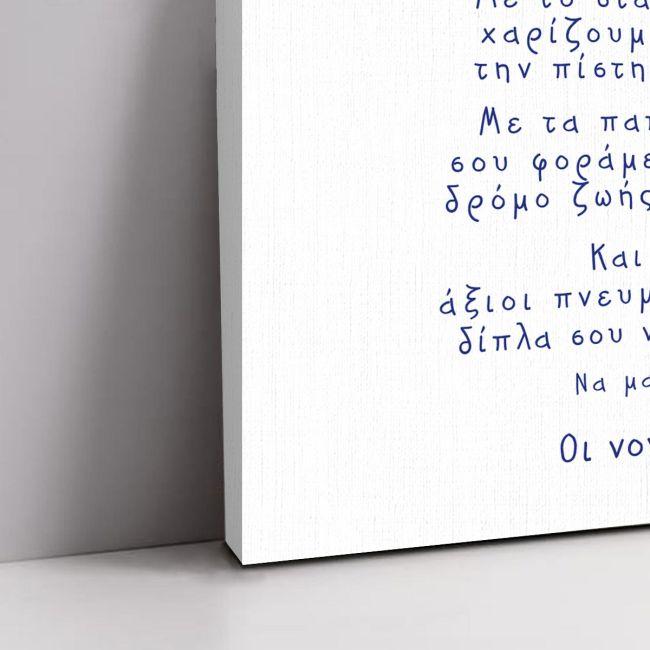 Με το
χαρίζουμ
την πίστη
Με τα πατ
σου φοράμε
δρόμο ζωής
Και
άξιοι πνευμ
δίπλα σου ν
Να μα
Οι νον